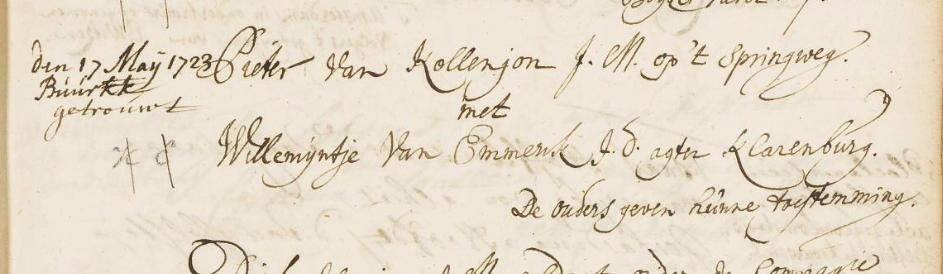 den 17 Maÿ 1723
Buurkk
getrouwt
Pieter Van Kollenjon J. M. op't Springweg.
met
Willemyntje Van Emmerik J. d. agter Klarenburg.
De ouders geven hunne toestemming.